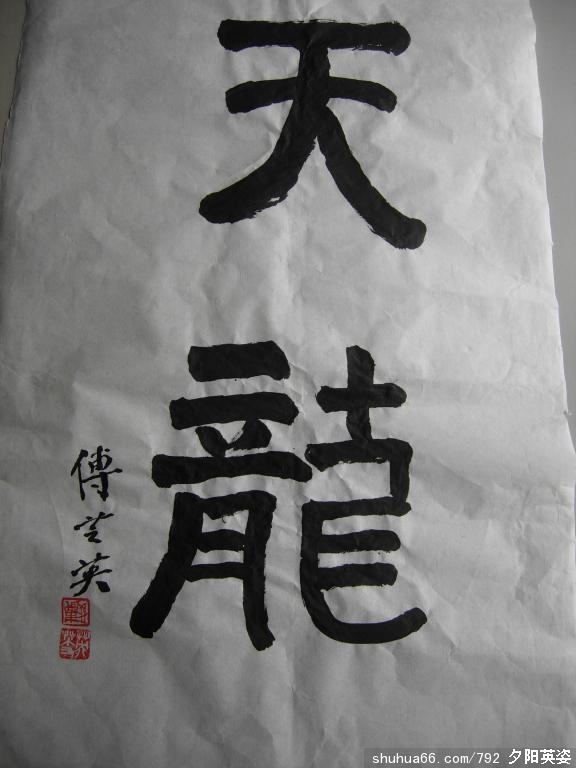 天
龍
傅芝英
shuhua66.com/792 夕阳英姿